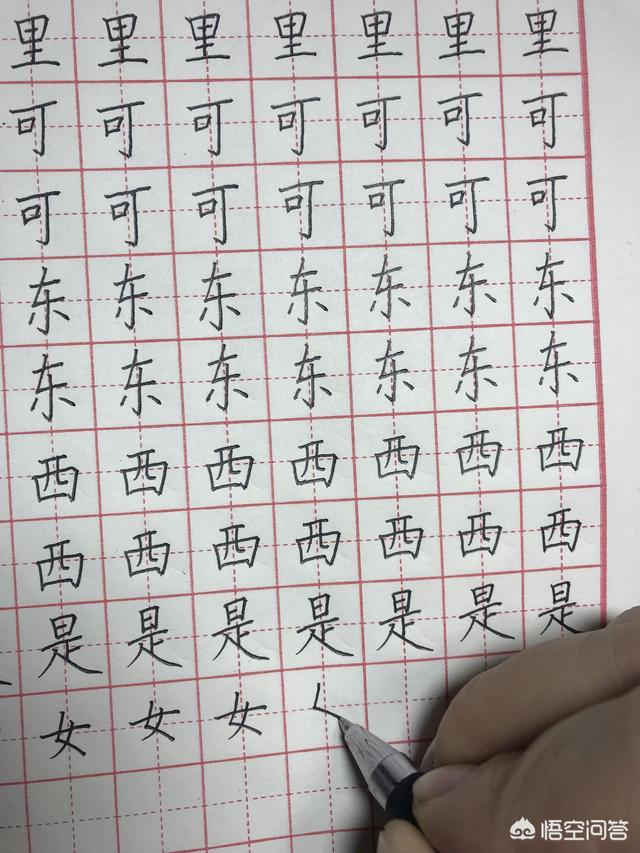 里里里里里里里
可可可可可可可
可可可可可可可
东东东东东东东
东东东东东东东
西西西西西西西
西西西西西西西
是是是是是是是
女女女
悟空问答